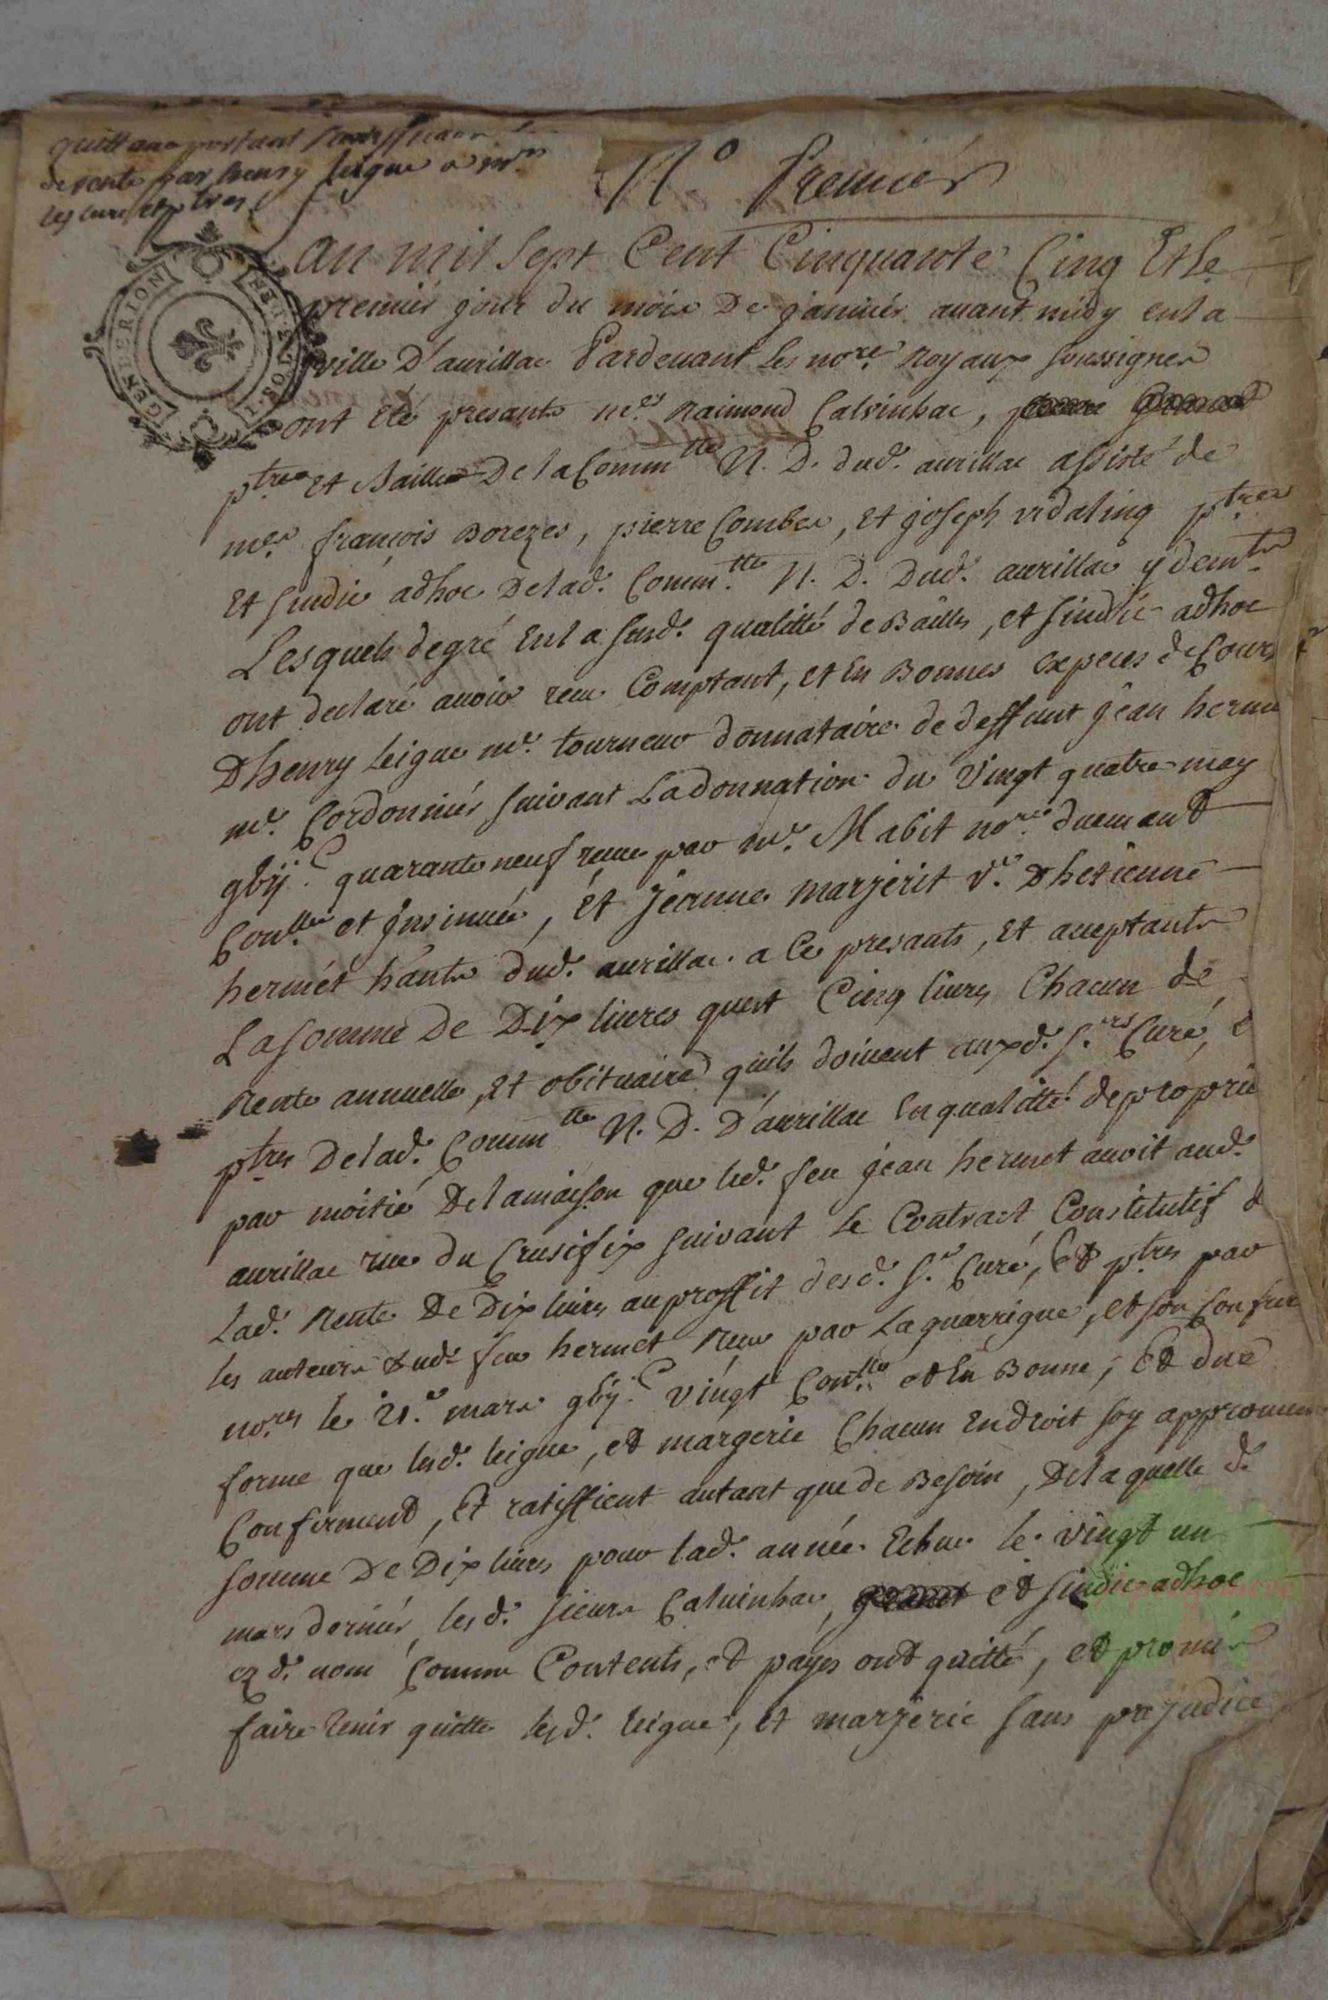 quittance portant
de rente par henry leigue a mrs
les curé et ptres
N° Premier
GEN DE RION
I. SOL 4. DEN
an mil sept Cent Cinquante Cinq Et le
premier jour du mois De janvier avant midy en la
ville D'aurillac Pardevant Les nores Royaux soussignes
ont été presants mes Raimond Calvinhac,
ptres et Bailles De la Commtté N. D. dud. aurillac assisté de
mes françois Borezes, pierre Combes, et joseph vidalinq ptres
Et sindic adhoc De lad. Commtté N. D. Dud. aurillac y demts
Lesquels de gré En la susd. qualitté de Bailles, et sindic adhoc
ont declaré avoir reçu Comptant, et En Bonnes expeces de Cours
D henry leigue me. tourneur donnataire de deffunt jean herm
me. Cordonnier suivant La donnation du vingt quatre may
gbij c quarante neuf reçue par me. Mabit nore. duemant
Conllée et Insinuée, Et jeanne marjerit ve. D hetienne
hermét hants dud. aurillac a Ce presants, et acceptants
La somme De Dix livres quest Cinq livres Chacun de
Rente annuelle, Et obituaire quils doivent auxd. srs Curé, e
ptres De lad. Commtté N. D. D'aurillac En qualitté de proprie
par moitié De la maison que led. feu jean hermet avoit aud.
aurillac rue du Crusifix suivant Le Contract Constitutif d
Lad. Rente De Dix livres au proffit desd. srs Curé, Et ptres par
les auteurs dud. feu hermet Reçu par Laguarrigue, et son Confre
nores le 21e mars gbij c vingt Conllé et En Bonne, Et due
forme que lesd. leigue, et margerie Chacun En droit soy approuven
Confirment, Et ratiffient autant que de Besoin, De laquelle d.
somme De Dix livres pour lad. année Echue le vingt un
mars dernier, lesd. sieurs Calvinhac, et sindic adhoc
ezd. nom Comme Contents, et payés ont quitté, et promis
faire tenir quitte lesd. leigue, et marjerie sans prejudice